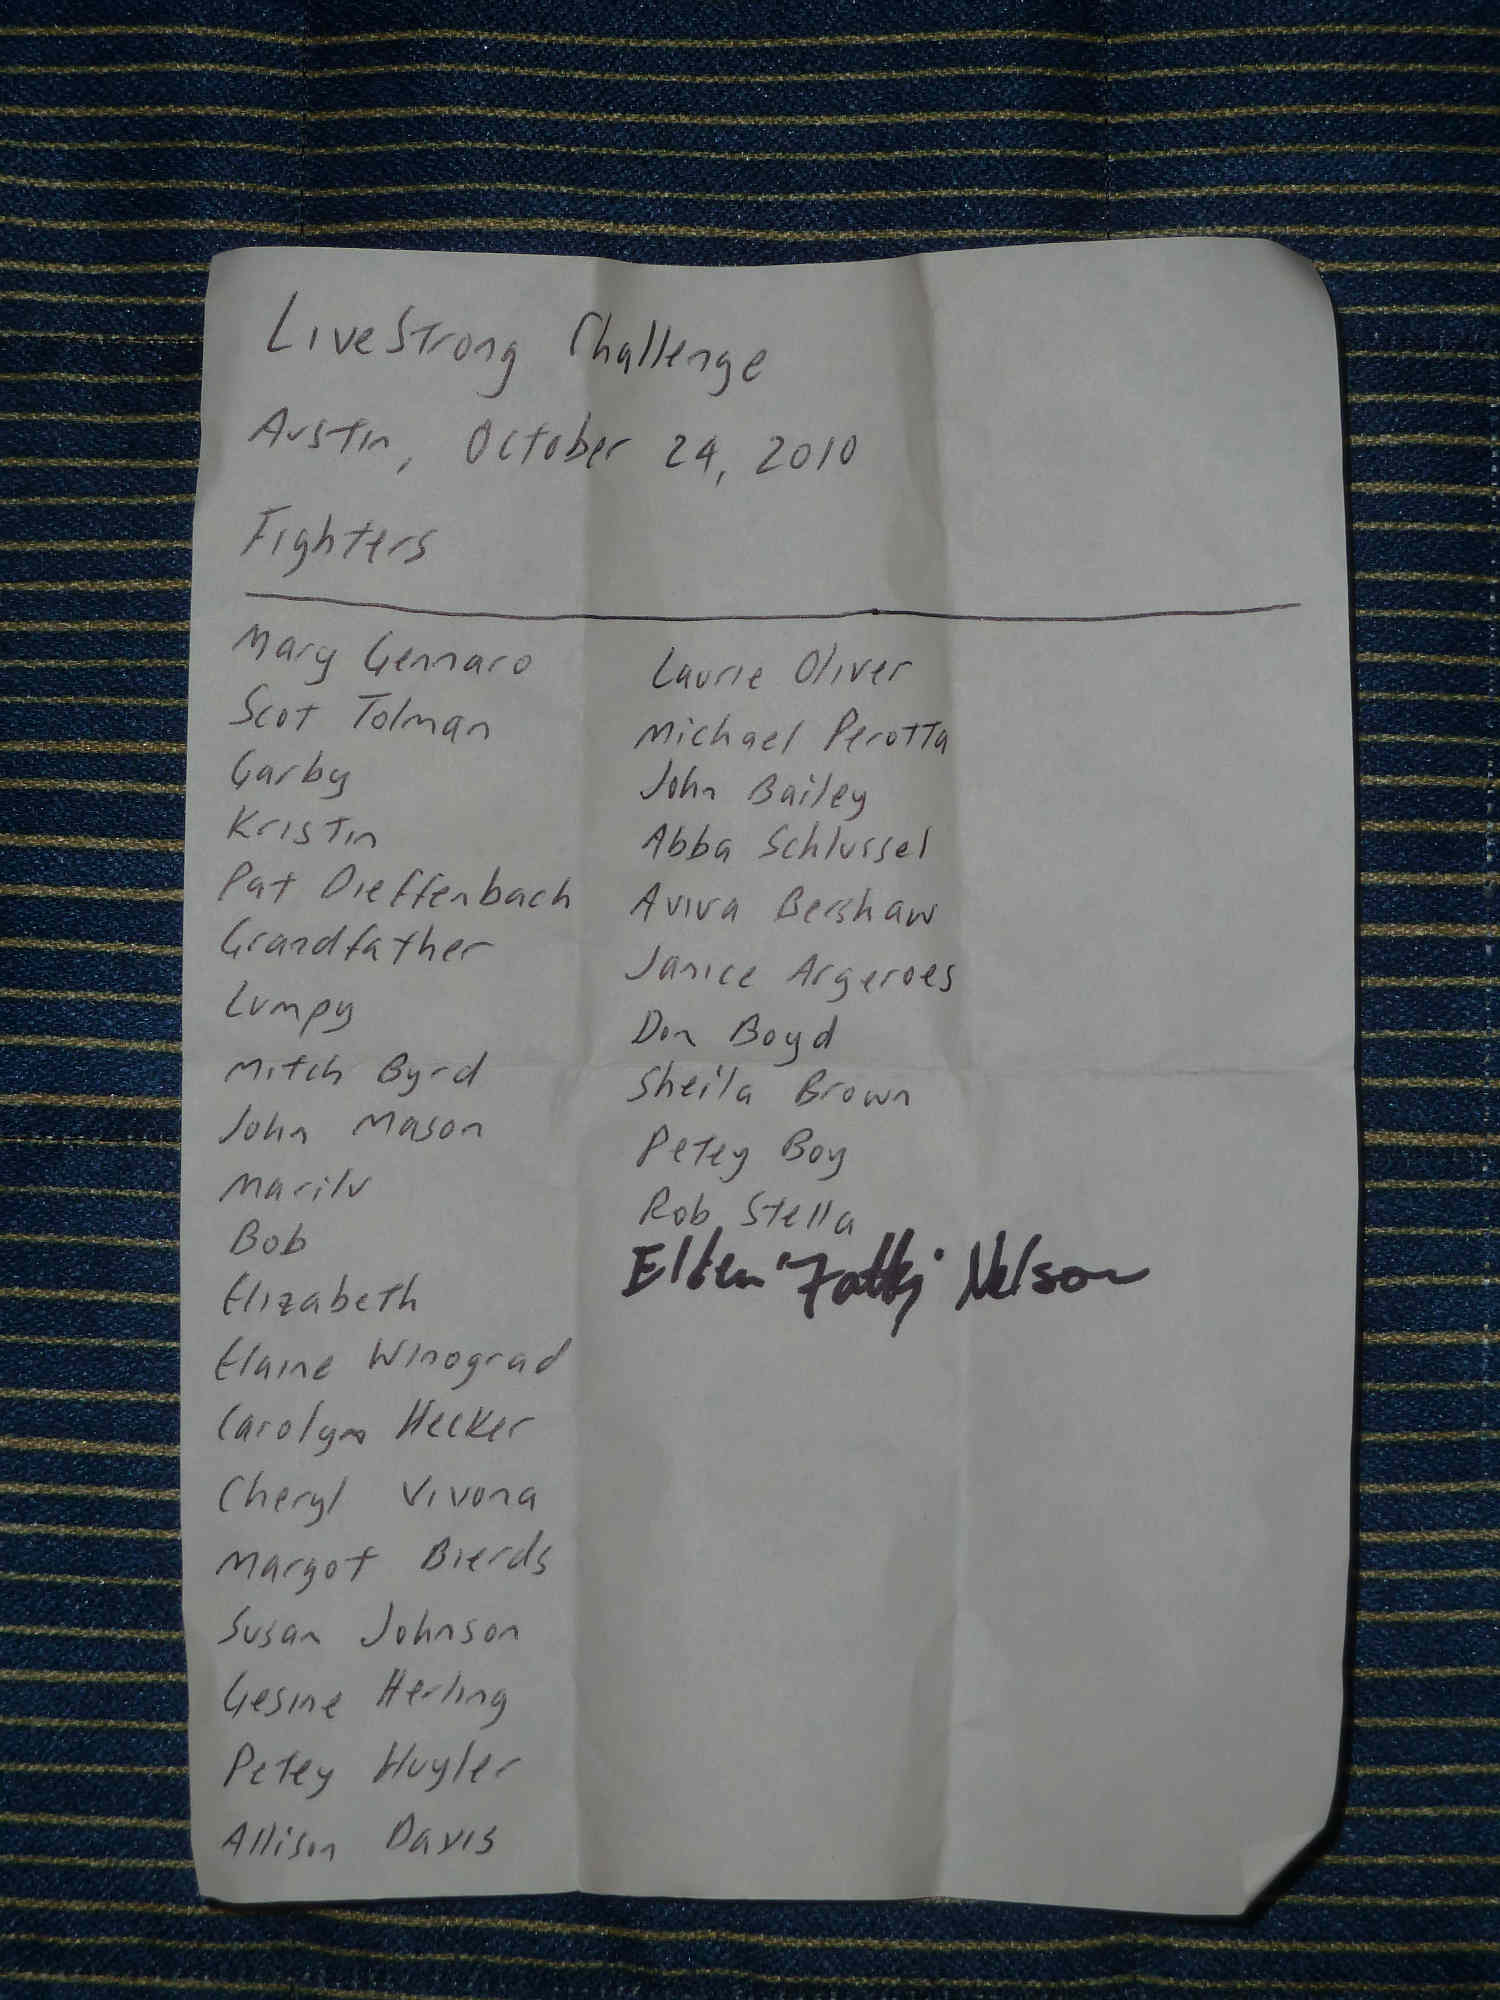 LiveStrong Challenge
Austin, October 24, 2010
Fighters
Mary Gennaro
Scot Tolman
Garby
Kristin
Pat Dieffenbach
Grandfather
Lumpy
Mitch Byrd
John Mason
Marilu
Bob
Elizabeth
Elaine Winograd
Carolyn Hecker
Cheryl Vivona
Margot Bierds
Susan Johnson
Gesine Herling
Petey Huyler
Allison Davis
Laurie Oliver
Michael Perotta
John Bailey
Abba Schlussel
Aviva Bershaw
Janice Argeroes
Don Boyd
Sheila Brown
Petey Boy
Rob Stella
Elden "Fatty" Nelson